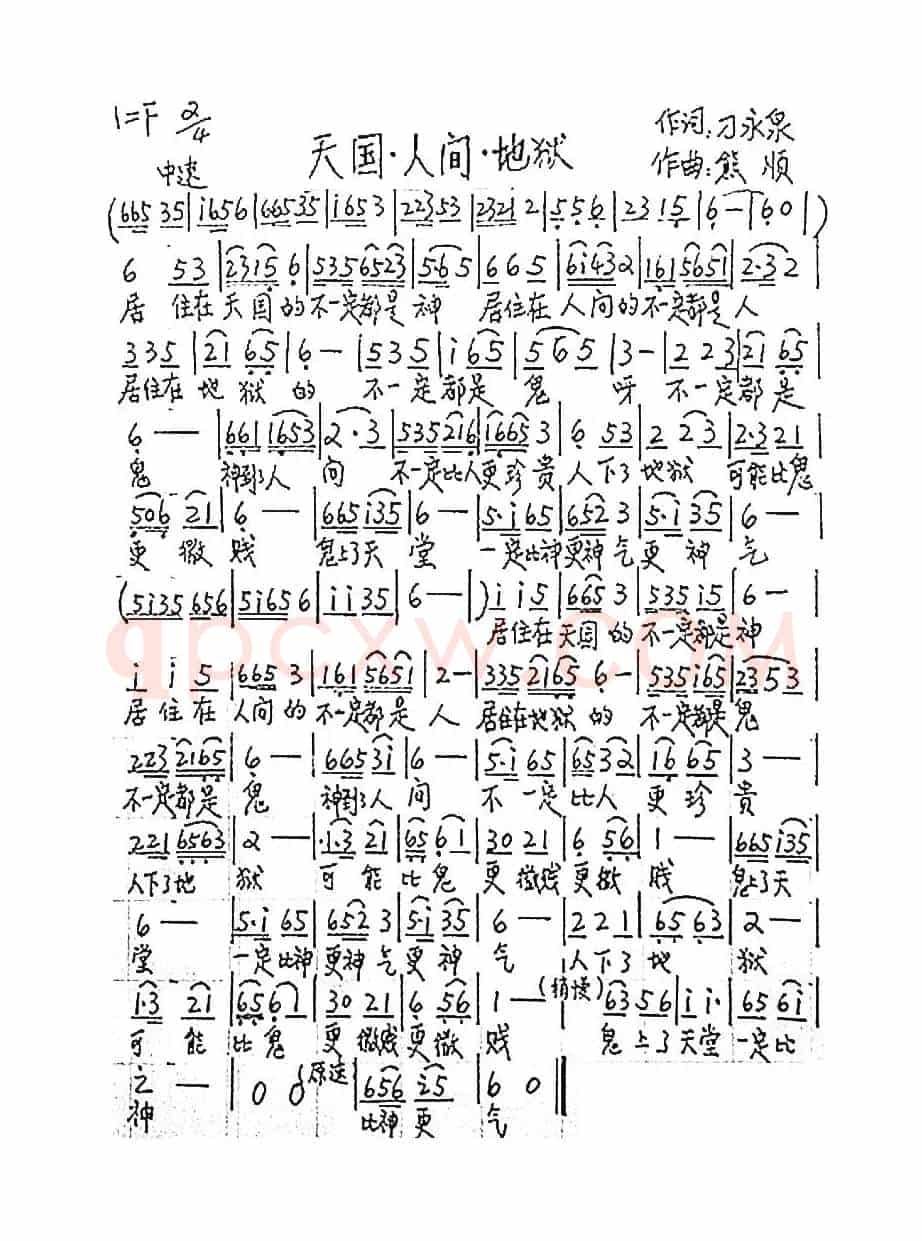 1=F 2/4
中速
天国·人间·地狱
作词:刁永泉
作曲:熊 顺
(665 35|i656|665 35|i653|223 53|2321 2|5 5 6|23 15|6 —|6 0|)
6 53|2315 6|535 6523|5·65|6 6 5|6i43 2|161 5651|2·3 2|
居 住在天国的不一定都是神 居住在人间的不一定都是人
3 3 5|21 65|6 —|5 3 5|i 65|5 6 5|3 —|2 2 3|21 65|
居住在地狱的 不一定都是鬼 呀 不一定都是
6 —|661 1653|2·3|535 216|1665 3|6 53|2 23|2·3 21|
鬼 神到了人间 不一定比人更珍贵人下了地狱 可能比鬼
506 21|6 —|665 i35|6 —|5·i 65|652 3|5·i 35|6 —|
更微贱 鬼上了天堂 一定比神更神气更神气
(5i35 656|5i65 6|i i 35|6 —|)i i 5|665 3|535 i5|6 —
居住在天国的不一定都是神
i i 5|665 3|161 5651|2 —|335 2165|6 —|535 i65|23 53|
居住在人间的不一定都是人 居住在地狱的 不一定都是鬼
223 2165|6 —|665 3i|6 —|5·i 65|65 32|i6 65|3 —|
不一定都是鬼 神到了人间 不一定比人更珍贵
221 6563|2 —|·1·3 21|65 61|30 21|6 56|1 —|665 i35|
人下了地狱 可能比鬼 更微贱更微贱 鬼上了天
6 —|5·i 65|652 3|5·i 35|6 —|2 2 1|65 63|2 —|
堂 一定比神更神气更神气 人下了地狱
1·3 21|65 61|30 21|6 56|1 —(稍慢)|63 56|i i·|65 6i|
可能比鬼 更微贱更微贱 鬼上了天堂一定比
2 —|0 0(原速)|656 i5|6 0‖
神 比神更气
qpcxw.com